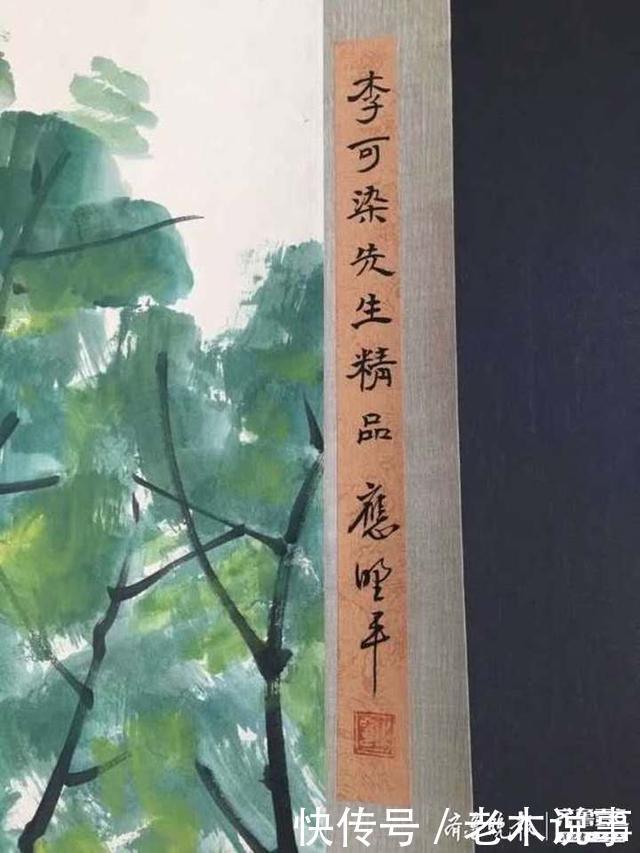 李可染先生精品
應野平
快传号/老木说事
齐鲁晚报